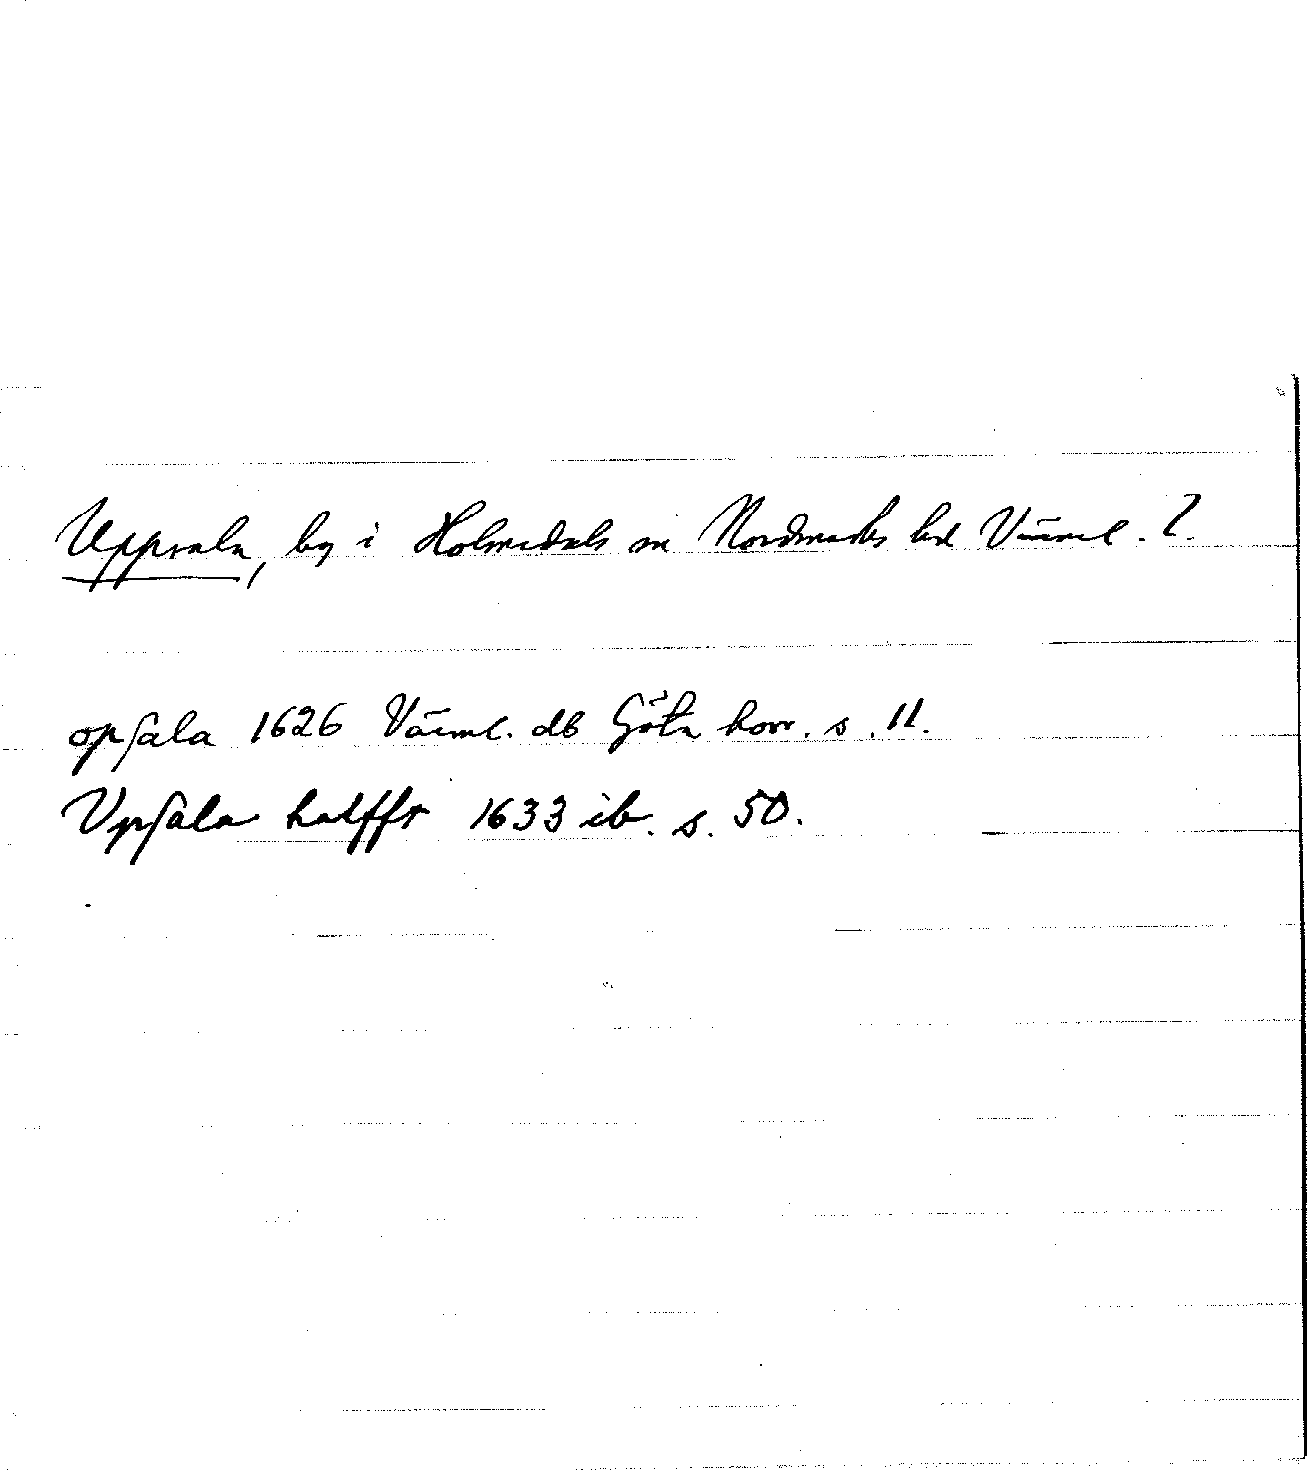 Uppsala, by i Holmedals sn Nordmarks hd Värml. ?
opſala 1626 Värml. db Göta hovr. s. 11.
Vpſala halfft 1633 ib. s. 50.